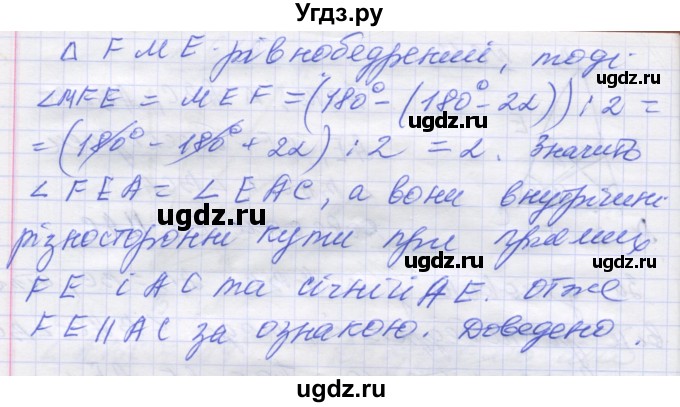 Угдз.ру
Δ FME - рівнобедрений, тоді
∠MFE = MEF = (180° - (180° - 2α)) : 2 =
= (180° - 180° + 2α) : 2 = α. Значить
∠FEA = ∠EAC, а вони внутрішні
різносторонні кути при прямих
FE і AC та січній AE. Отже
FE || AC за ознакою. Доведено.
uгдз.ru
uгдз.ru
uгдз.ru
uгдз.ru
uгдз.ru
uгдз.ru